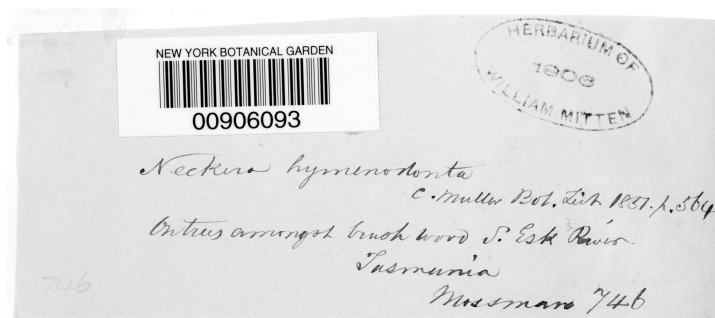 NEW YORK BOTANICAL GARDEN
00906093
HERBARIUM OF
1906
WILLIAM MITTEN
Neckera hymenodonta
C. Muller Bot. Zeit 1851. p. 564
On trees amongst brush wood S. Esk River
Tasmania
Mossman 746
746